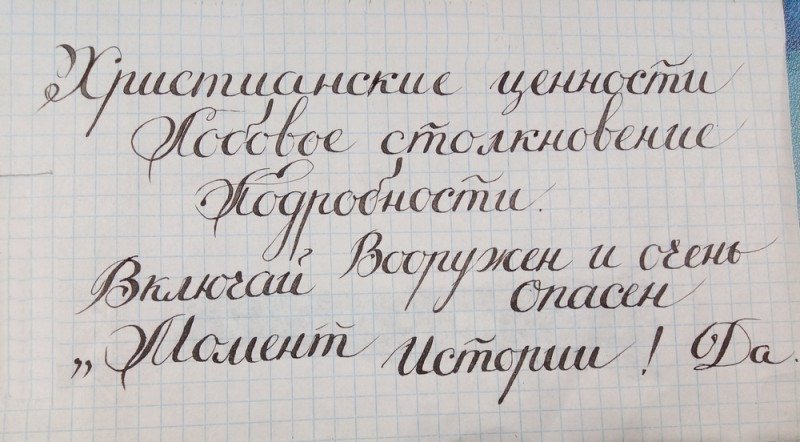 Христианские ценности
Лобовое столкновение
Подробности.
Включай Вооружен и очень
опасен
„Момент Истории! Да.